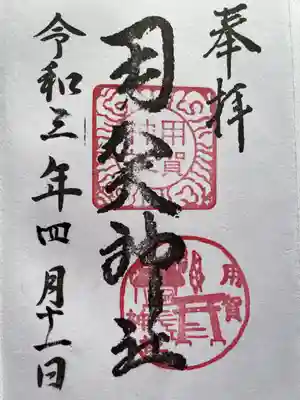 奉拝
用賀神社
令和三年四月十一日
用賀
神社
用賀
神社